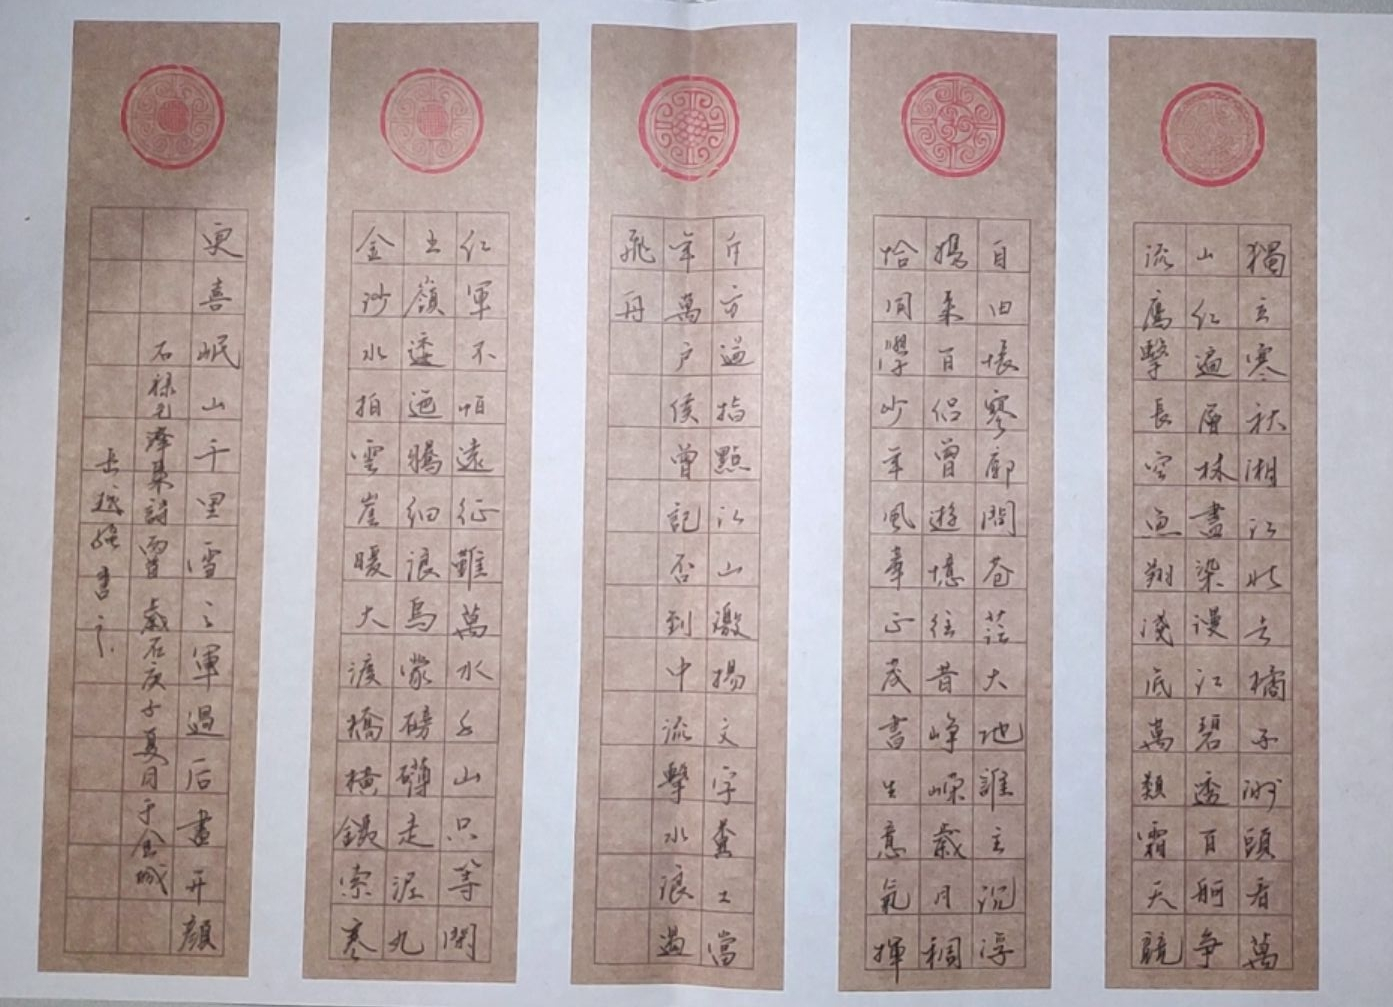 獨立寒秋湘江北去橘子洲頭看萬
山紅遍層林盡染漫江碧透百舸爭
流鷹擊長空魚翔淺底萬類霜天競
自由悵寥廓問蒼茫大地誰主沉浮
攜來百侶曾遊憶往昔崢嶸歲月稠
恰同學少年風華正茂書生意氣揮
斥方遒指點江山激揚文字糞土當
年萬户侯曾記否到中流擊水浪遏
飛舟
紅軍不怕遠征難萬水千山只等閑
五嶺逶迤騰細浪烏蒙磅礴走泥丸
金沙水拍雲崖暖大渡橋橫鐵索寒
更喜岷山千里雪三軍過后盡开顏
右禄毛澤東詩歲在庚子夏月于金城
書